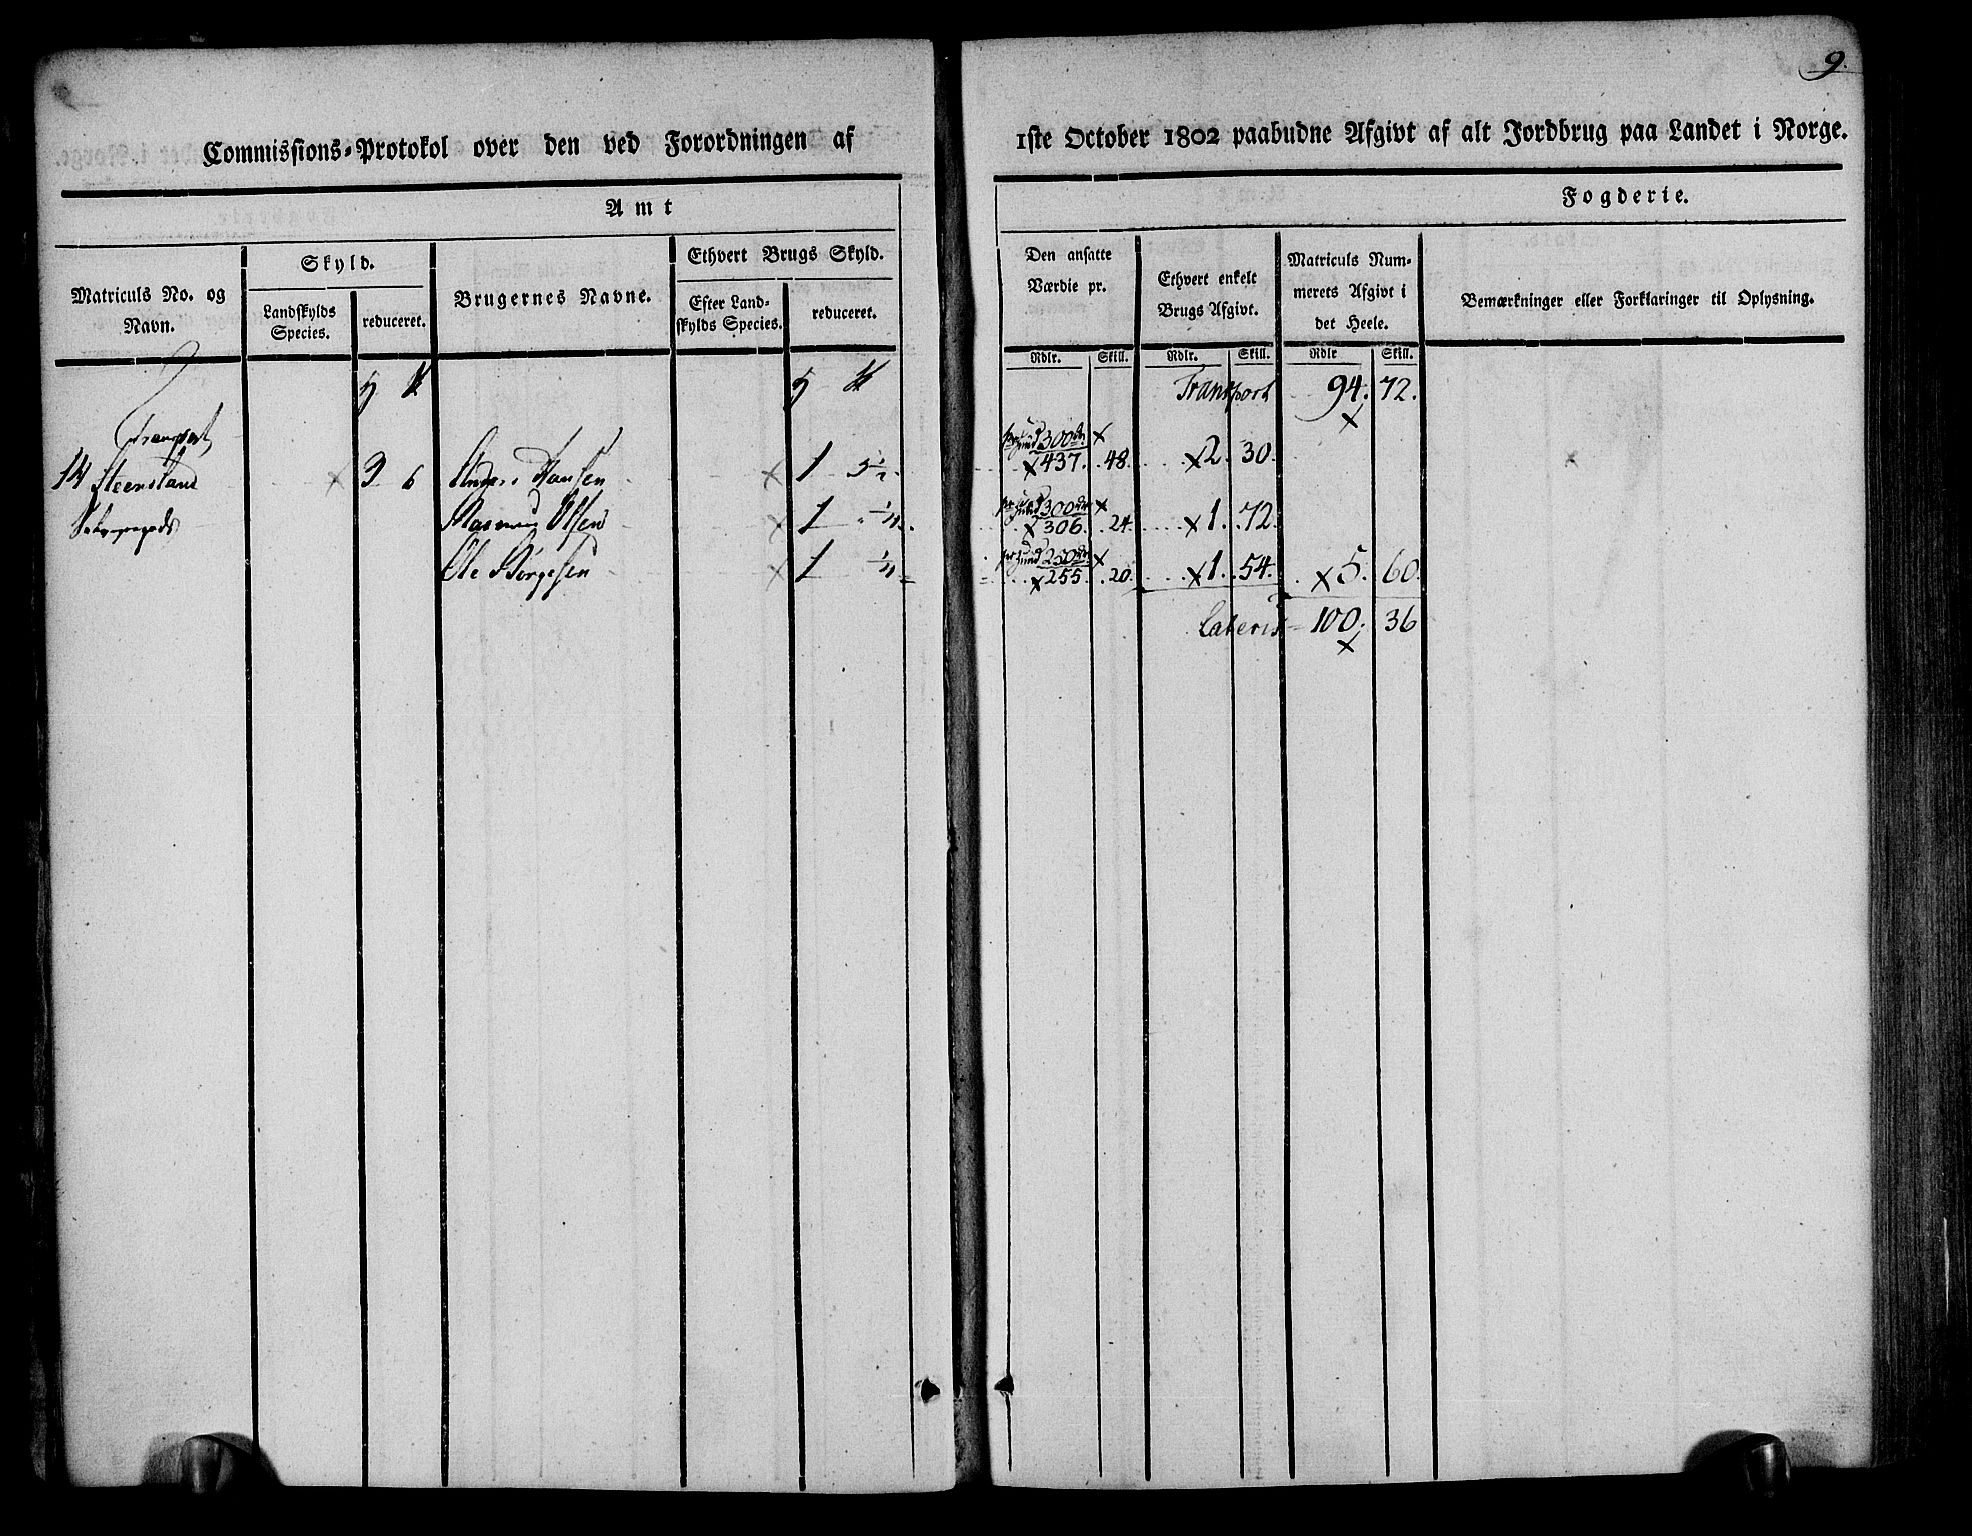 9.
Commissions-Protokol over den ved Forordningen af 1ste October 1802 paabudne Afgivt af alt Jordbrug paa Landet i Norge.
Amt Fogderie.
Matriculs No. og Navn.
Skyld.
Landskylds Species.
reduceret.
Brugernes Navne.
Ethvert Brugs Skyld.
Efter Landskylds Species.
reduceret.
Den ansatte Værdie pr.
Rdlr. Skill.
Ethvert enkelt Brugs Afgivt.
Rdlr. Skill.
Matriculs Nummerets Afgivt i det Heele.
Rdlr Skill.
Bemærkninger eller Forklaringer til Oplysning.
Transport 94. 72.
Transport
pr hund 300
14 Steensland 3 6 Anders Hansen 1 5½ 437. 48. 2. 30.
pr hund 300
Rasmus Olsen 1 ¼ 306. 24. 1. 72.
pr hund 250
Ole Børgesen 1 ¼ 255. 20. 1. 54. 5. 60.
Lateris 100. 36